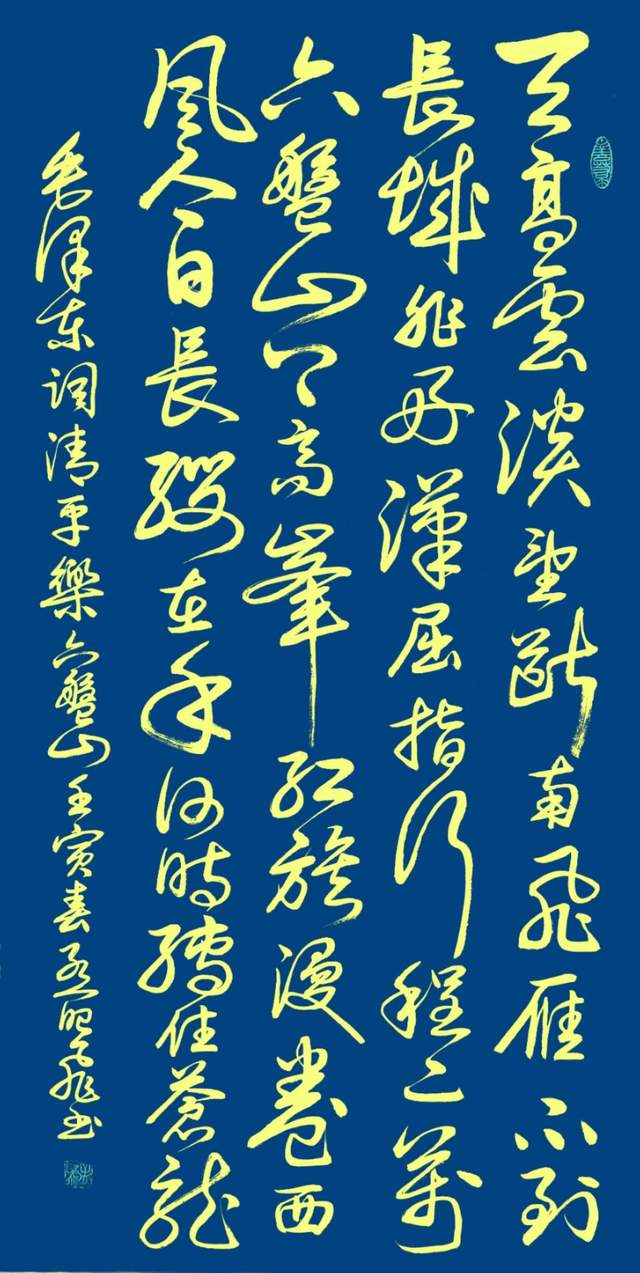 天高雲淡望斷南飛雁不到
長城非好漢屈指行程二萬
六盤山上高峯紅旗漫卷西
風今日長纓在手何時縛住蒼龍
毛澤東詞清平樂六盤山壬寅春飛书